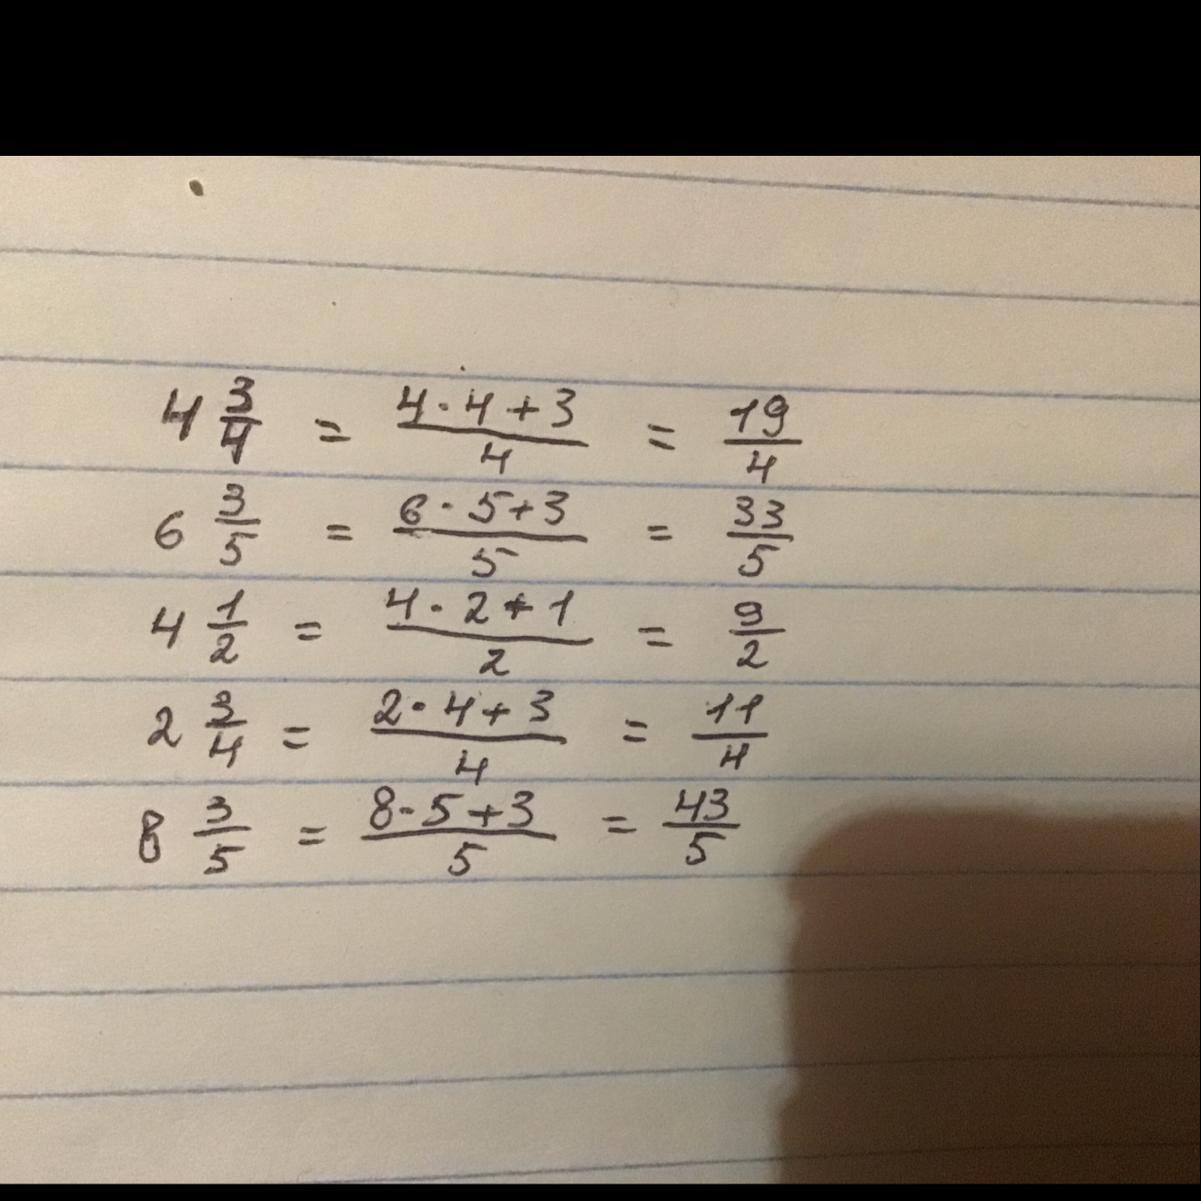 4 3/4 = (4·4+3)/4 = 19/4
6 3/5 = (6·5+3)/5 = 33/5
4 1/2 = (4·2+1)/2 = 9/2
2 3/4 = (2·4+3)/4 = 11/4
8 3/5 = (8·5+3)/5 = 43/5